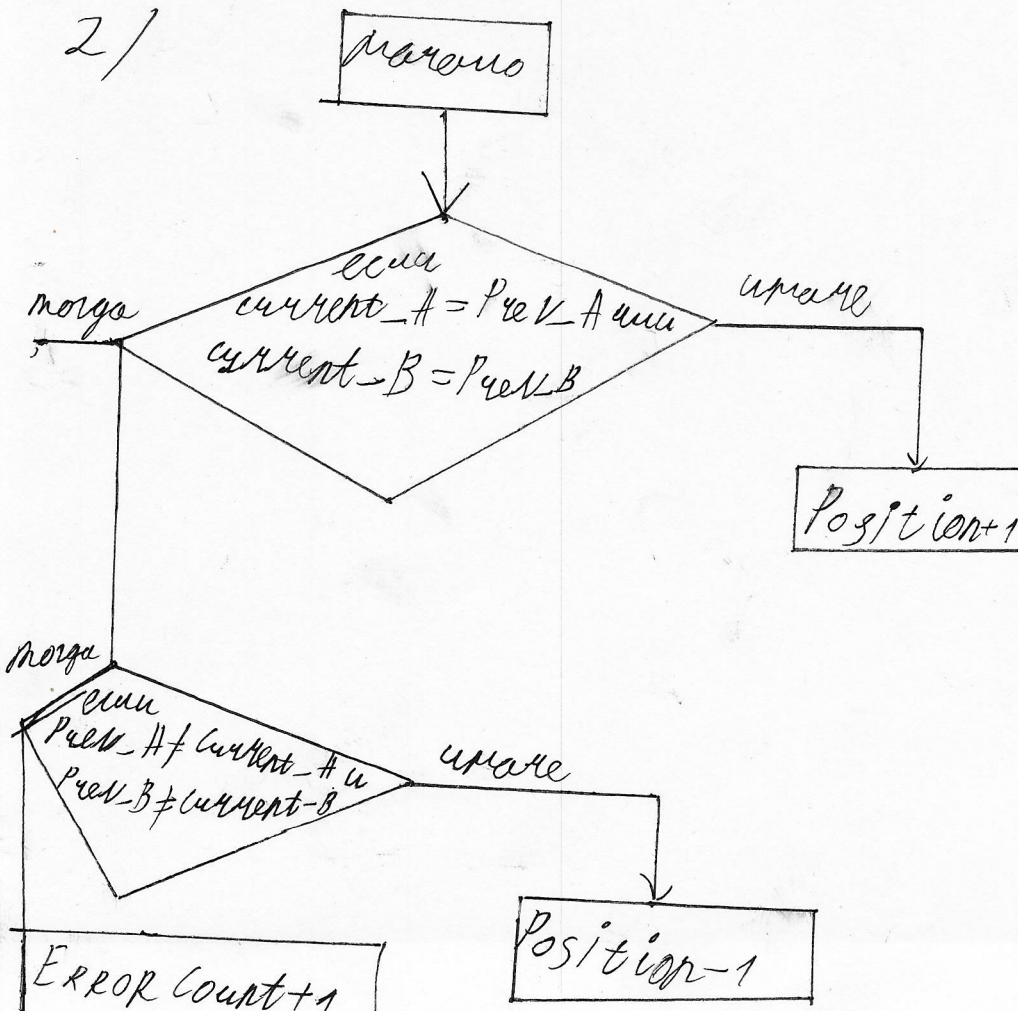 2)
начало
если
current_A = Prev_A или
current_B = Prev_B
тогда
иначе
Position+1
тогда
если
Prev_A ≠ Current_A и
Prev_B ≠ Current-B
иначе
Position-1
ERROR Count+1